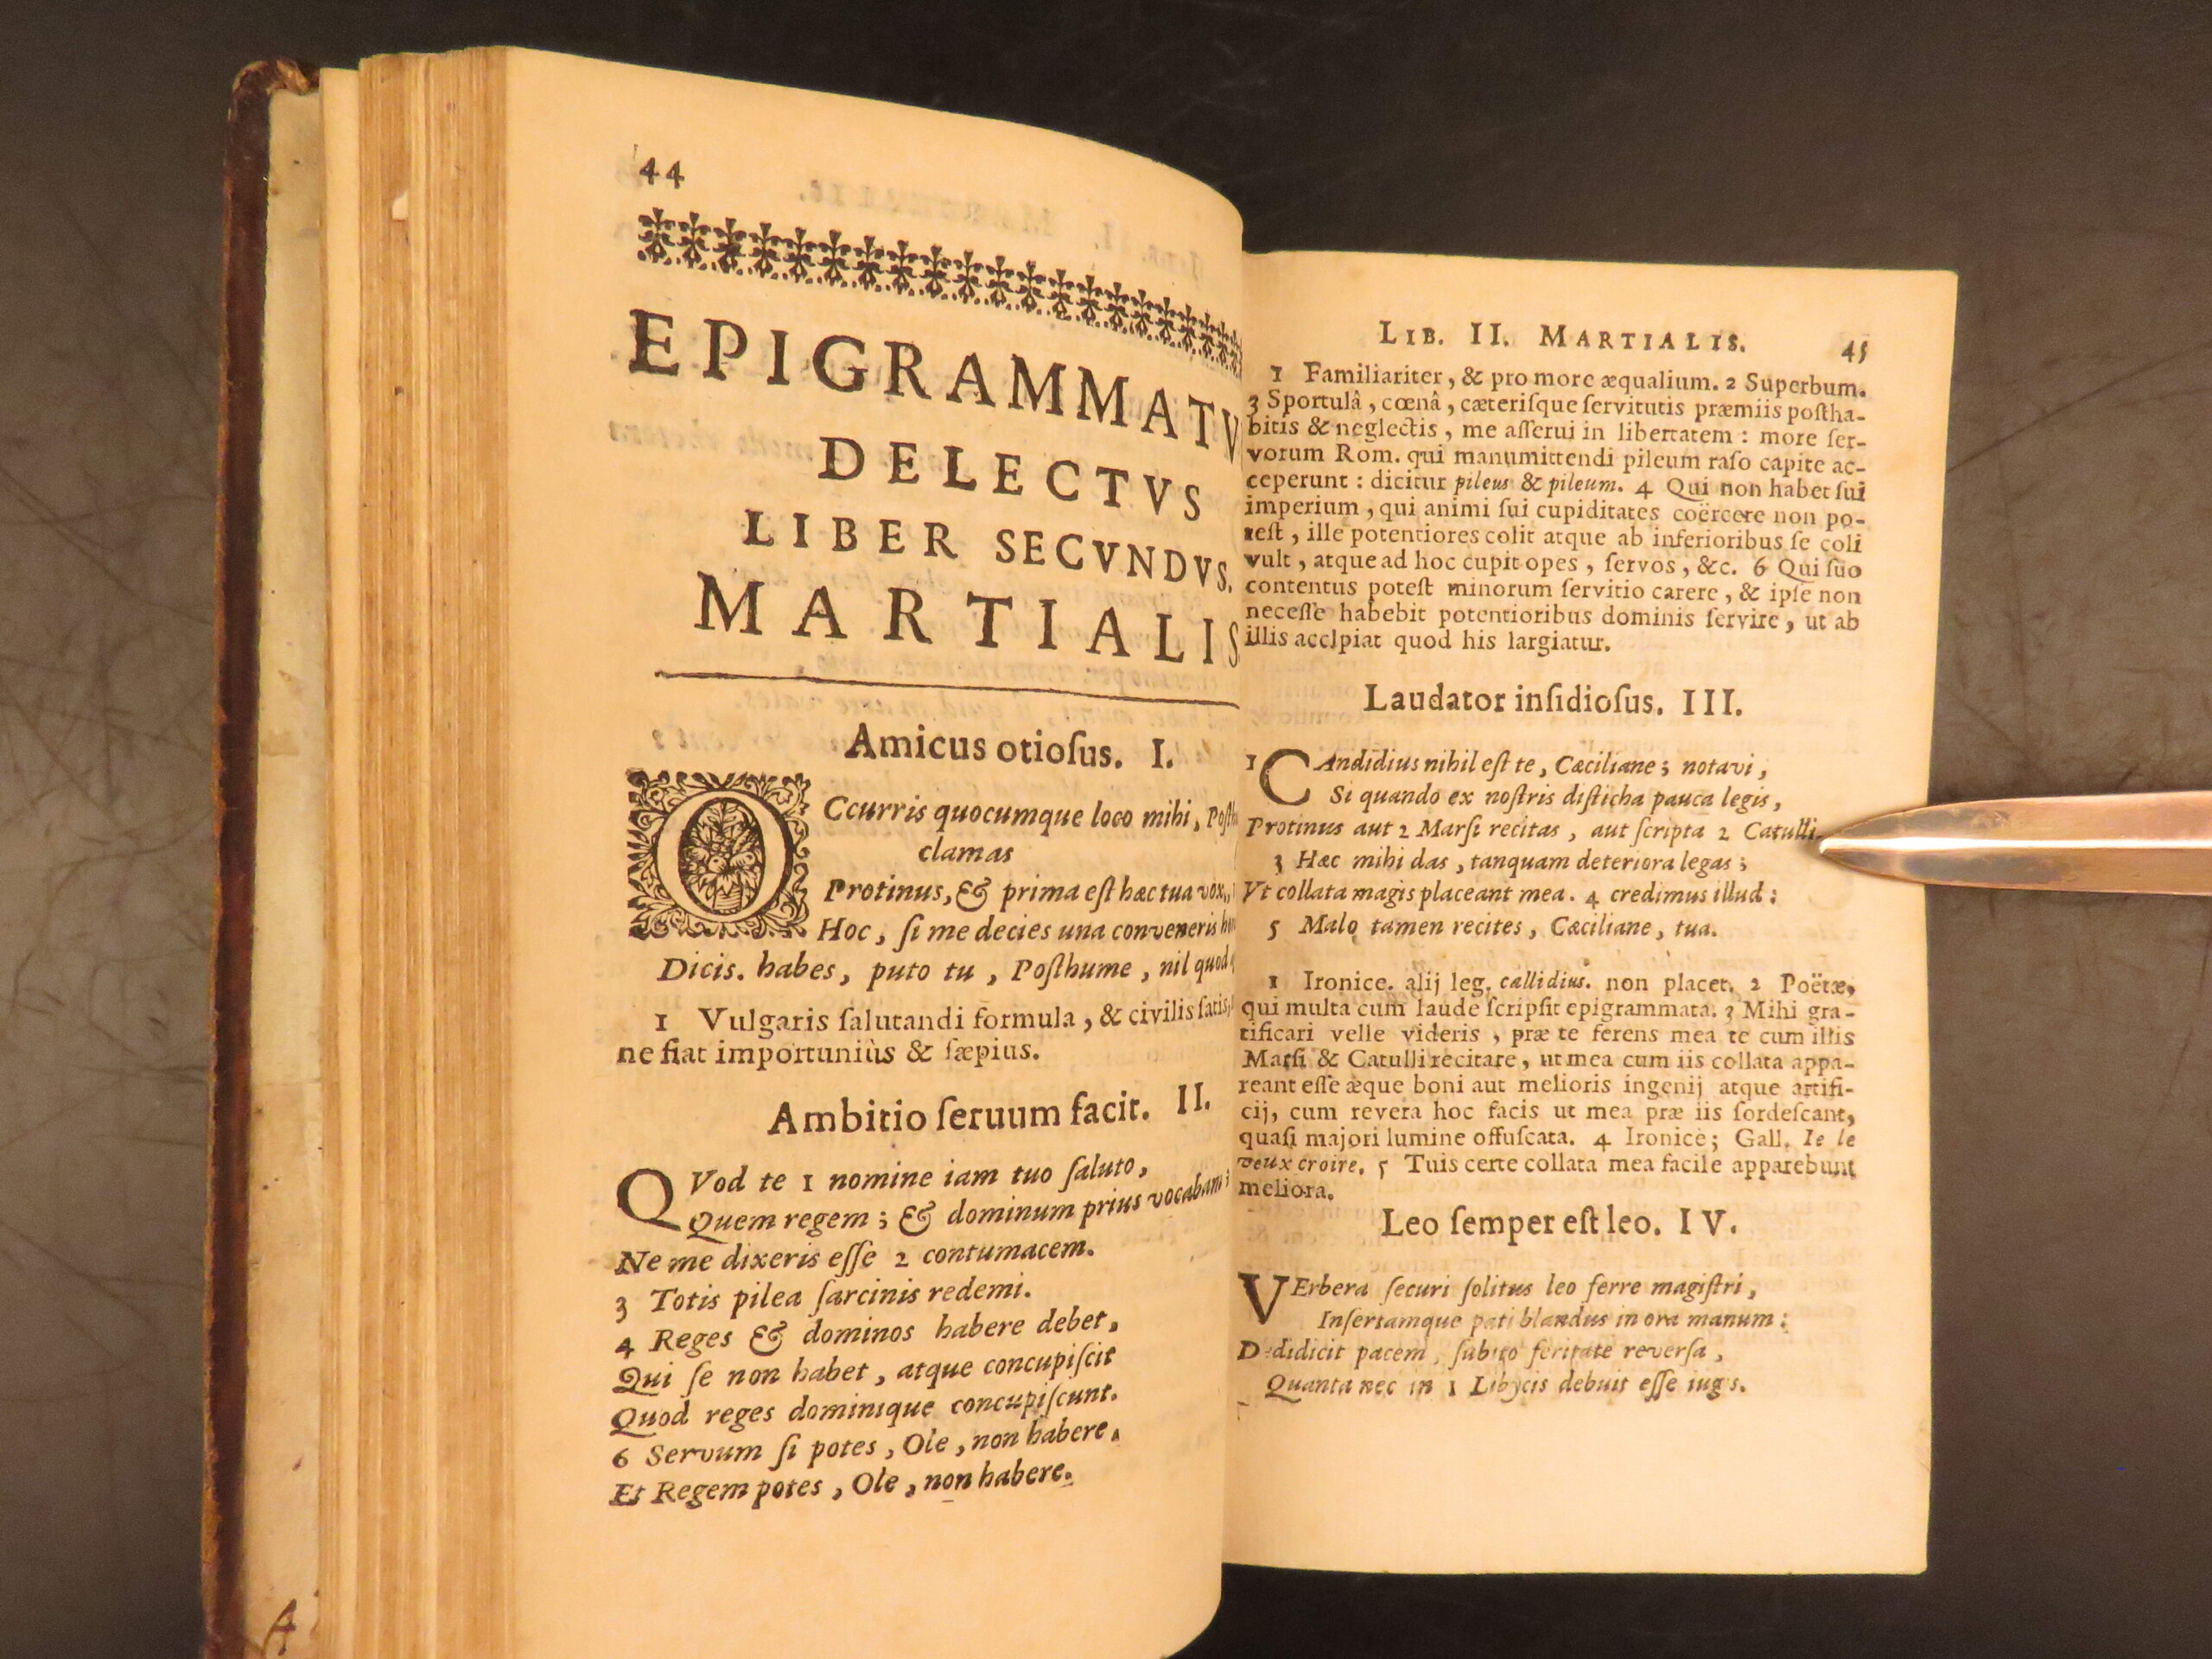 44
EPIGRAMMATV
DELECTVS
LIBER SECVNDVS.
MARTIALIS
Amicus otioſus. I.
OCcurris quocumque loco mihi, Poſthu
clamas
Protinus, & prima eſt hæc tua vox,
Hoc, ſi me decies una conveneris ho
Dicis. habes, puto tu, Poſthume, nil quod
1 Vulgaris ſalutandi formula, & civilis ſatis,
ne fiat importuniùs & ſæpius.
Ambitio ſeruum facit. II.
QVod te 1 nomine iam tuo ſaluto,
Quem regem; & dominum prius vocabam:
Ne me dixeris eſſe 2 contumacem.
3 Totis pilea ſarcinis redemi.
4 Reges & dominos habere debet,
Qui ſe non habet, atque concupiſcit
Quod reges dominique concupiſcunt.
6 Servum ſi potes, Ole, non habere,
Et Regem potes, Ole, non habere.
A
LIB. II. MARTIALIS. 45
1 Familiariter, & pro more æqualium. 2 Superbum.
3 Sportulâ, cœnâ, cæteriſque ſervitutis præmiis poſtha-
bitis & neglectis, me aſſerui in libertatem: more ſer-
vorum Rom. qui manumittendi pileum raſo capite ac-
ceperunt: dicitur pileus & pileum. 4 Qui non habet ſui
imperium, qui animi ſui cupiditates coërcere non po-
teſt, ille potentiores colit atque ab inferioribus ſe coli
vult, atque ad hoc cupit opes, ſervos, &c. 6 Qui ſuo
contentus poteſt minorum ſervitio carere, & ipſe non
neceſſe habebit potentioribus dominis ſervire, ut ab
illis accIpiat quod his largiatur.
Laudator inſidioſus. III.
1 CAndidius nihil eſt te, Cæciliane; notavi,
Si quando ex noſtris diſticha pauca legis,
Protinus aut 2 Marſi recitas, aut ſcripta 2 Catulli.
3 Hæc mihi das, tanquam deteriora legas;
Vt collata magis placeant mea. 4 credimus illud:
5 Malo tamen recites, Cæciliane, tua.
1 Ironice. alij leg. callidius. non placet. 2 Poëtæ,
qui multa cum laude ſcripſit epigrammata. 3 Mihi gra-
tificari velle videris, præ te ferens mea te cum illis
Marſi & Catulli recitare, ut mea cum iis collata appa-
reant eſſe æque boni aut melioris ingenij atque artifi-
cij, cum revera hoc facis ut mea præ iis ſordeſcant,
quaſi majori lumine offuſcata. 4 Ironicè; Gall. Ie le
veux croire. 5 Tuis certe collata mea facile apparebunt
meliora.
Leo ſemper eſt leo. IV.
VErbera ſecuri ſolitus leo ferre magiſtri,
Inſertamque pati blandus in ora manum:
Dedidicit pacem, ſubito feritate reverſa,
Quanta nec in 1 Libycis debuit eſſe iugis.